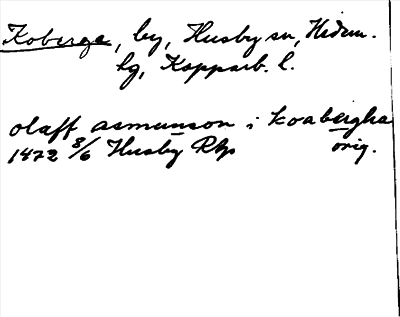 Koberge, by, Husby sn, Hedem.
hg, Kopparb. l.
olaff asmunson i koabergha
1472 8/6 Husby Rkp orig.